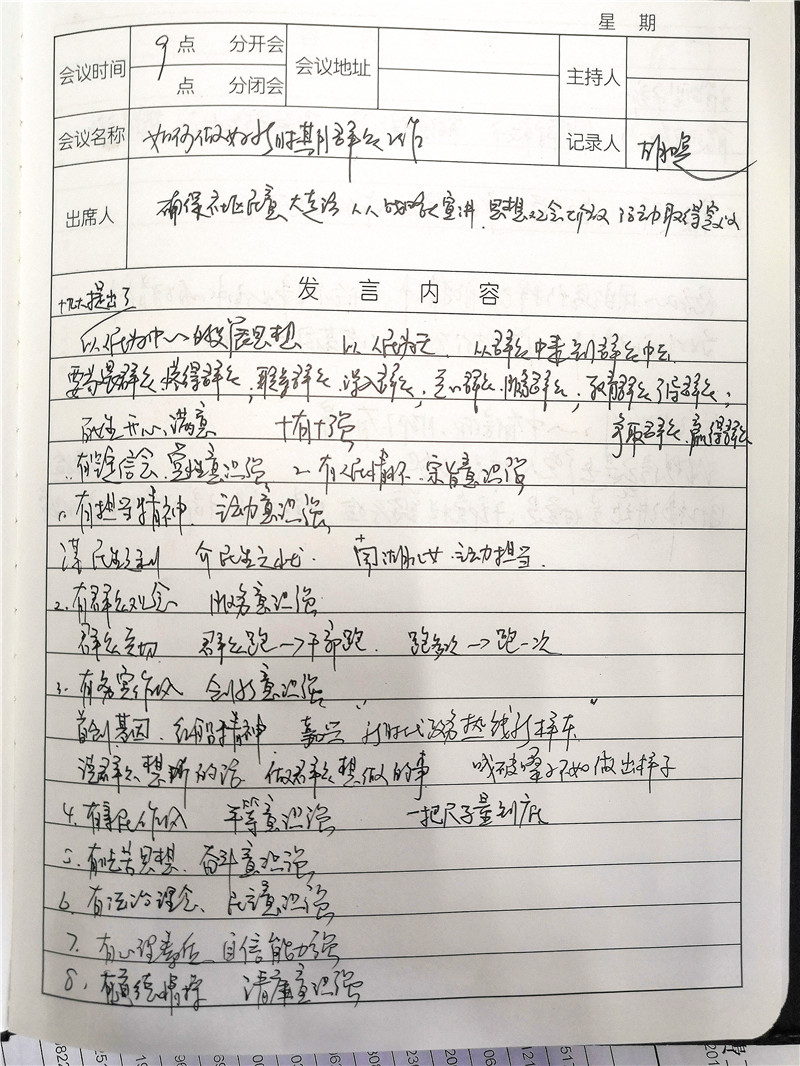 星 期
会议时间 9 点 分开会 会议地址 主持人
点 分闭会
会议名称 如何做好新时期群众工作 记录人
出席人 确保社区民意大走访 人人 战略大宣讲 思想 活动取得实效
发言内容
十九大提出了
以人民为中心的发展思想 以人民为 从群众中来到群众中去
要尊重群众 获得群众 联系群众 深入群众 关心群众 服务群众 教育群众 引导群众
民生开心、满意 十有十强 争取群众 赢得群众
有 信念 意识强 2 有人民情怀 宗旨意识强
1. 有担当精神 主动意识强
谋民生之利 民生之 南湖儿女 主动担当
2. 有群众观念 服务意识强
群众 群众跑→干部跑 跑多次→跑一次
3. 有务实作风 创新意识强
首创基因 红船精神 嘉兴 "新时代政务热线新样本"
说群众想听的话 做群众想做的事 喊破嗓子不如做出样子
4. 有 民作风 平等意识强 一把尺子量到底
5. 有吃苦思想 奋斗意识强
6. 有法治理念、民主意识强
7. 有心理素质 自信能力强
8. 有道德情操 清廉意识强